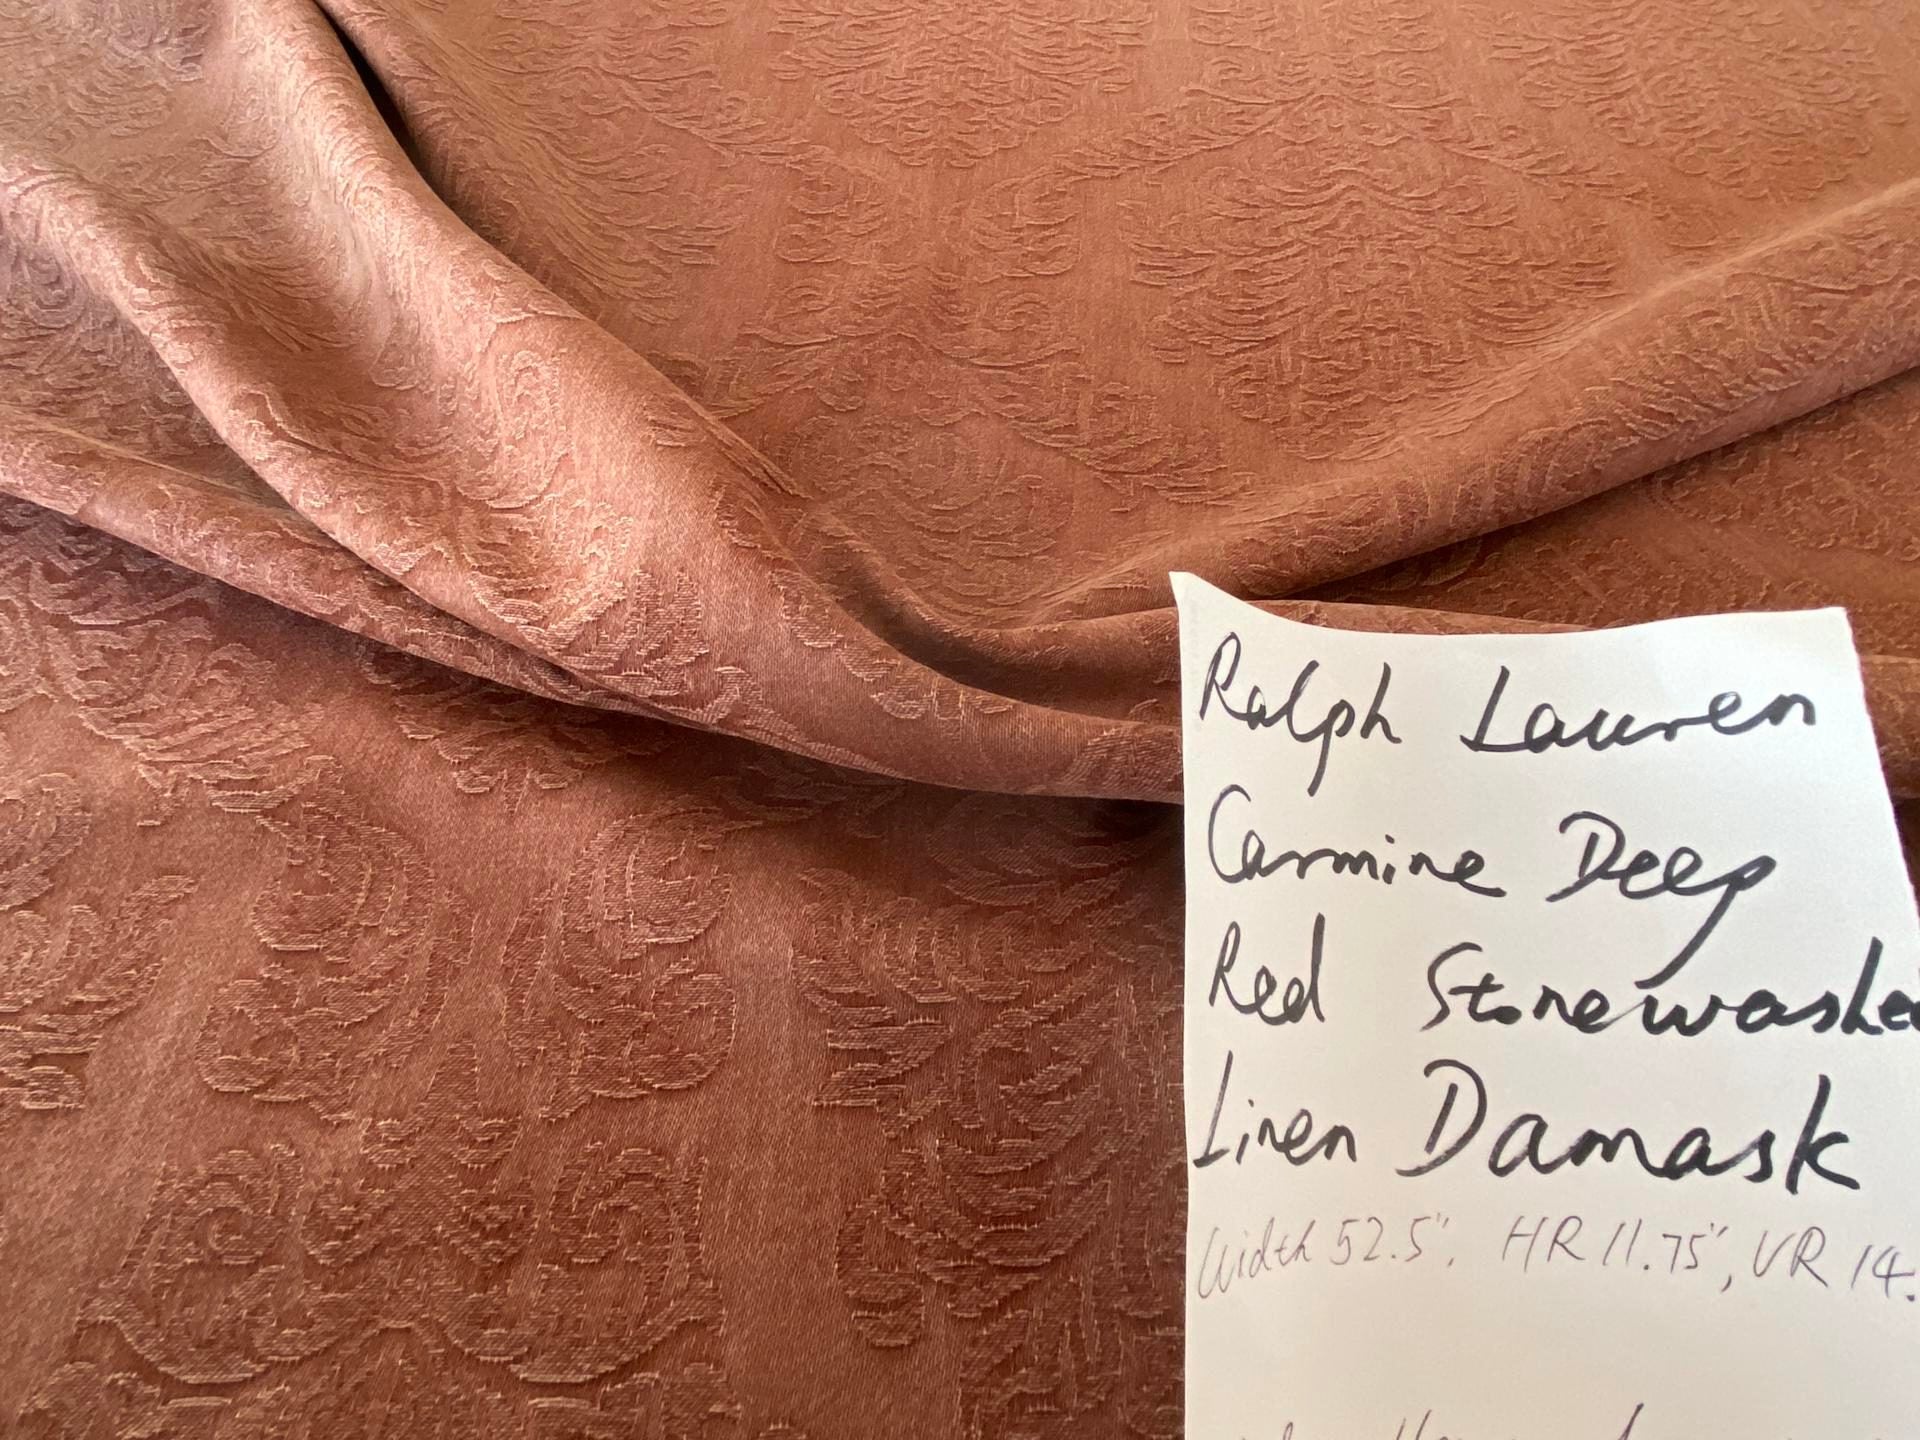 Ralph Lauren
Carmine Deep
Red Stonewashed
Linen Damask
Width 52.5", HR 11.75", VR 14.